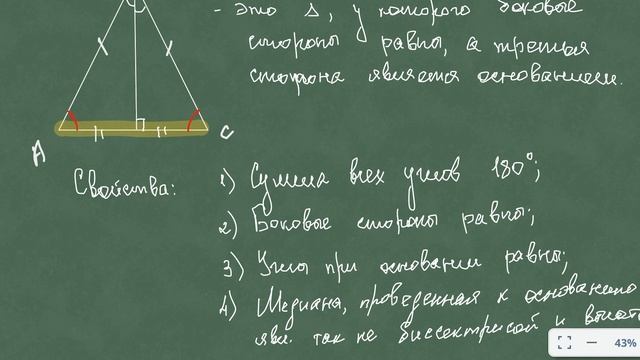 - это Δ, у которого боковые
стороны равны, а третья
сторона является основанием.
A
C
Свойства:
1) Сумма всех углов 180°;
2) Боковые стороны равны;
3) Углы при основании равны;
4) Медиана, проведенная к основанию
явл. так же биссектрисой и высот
43%